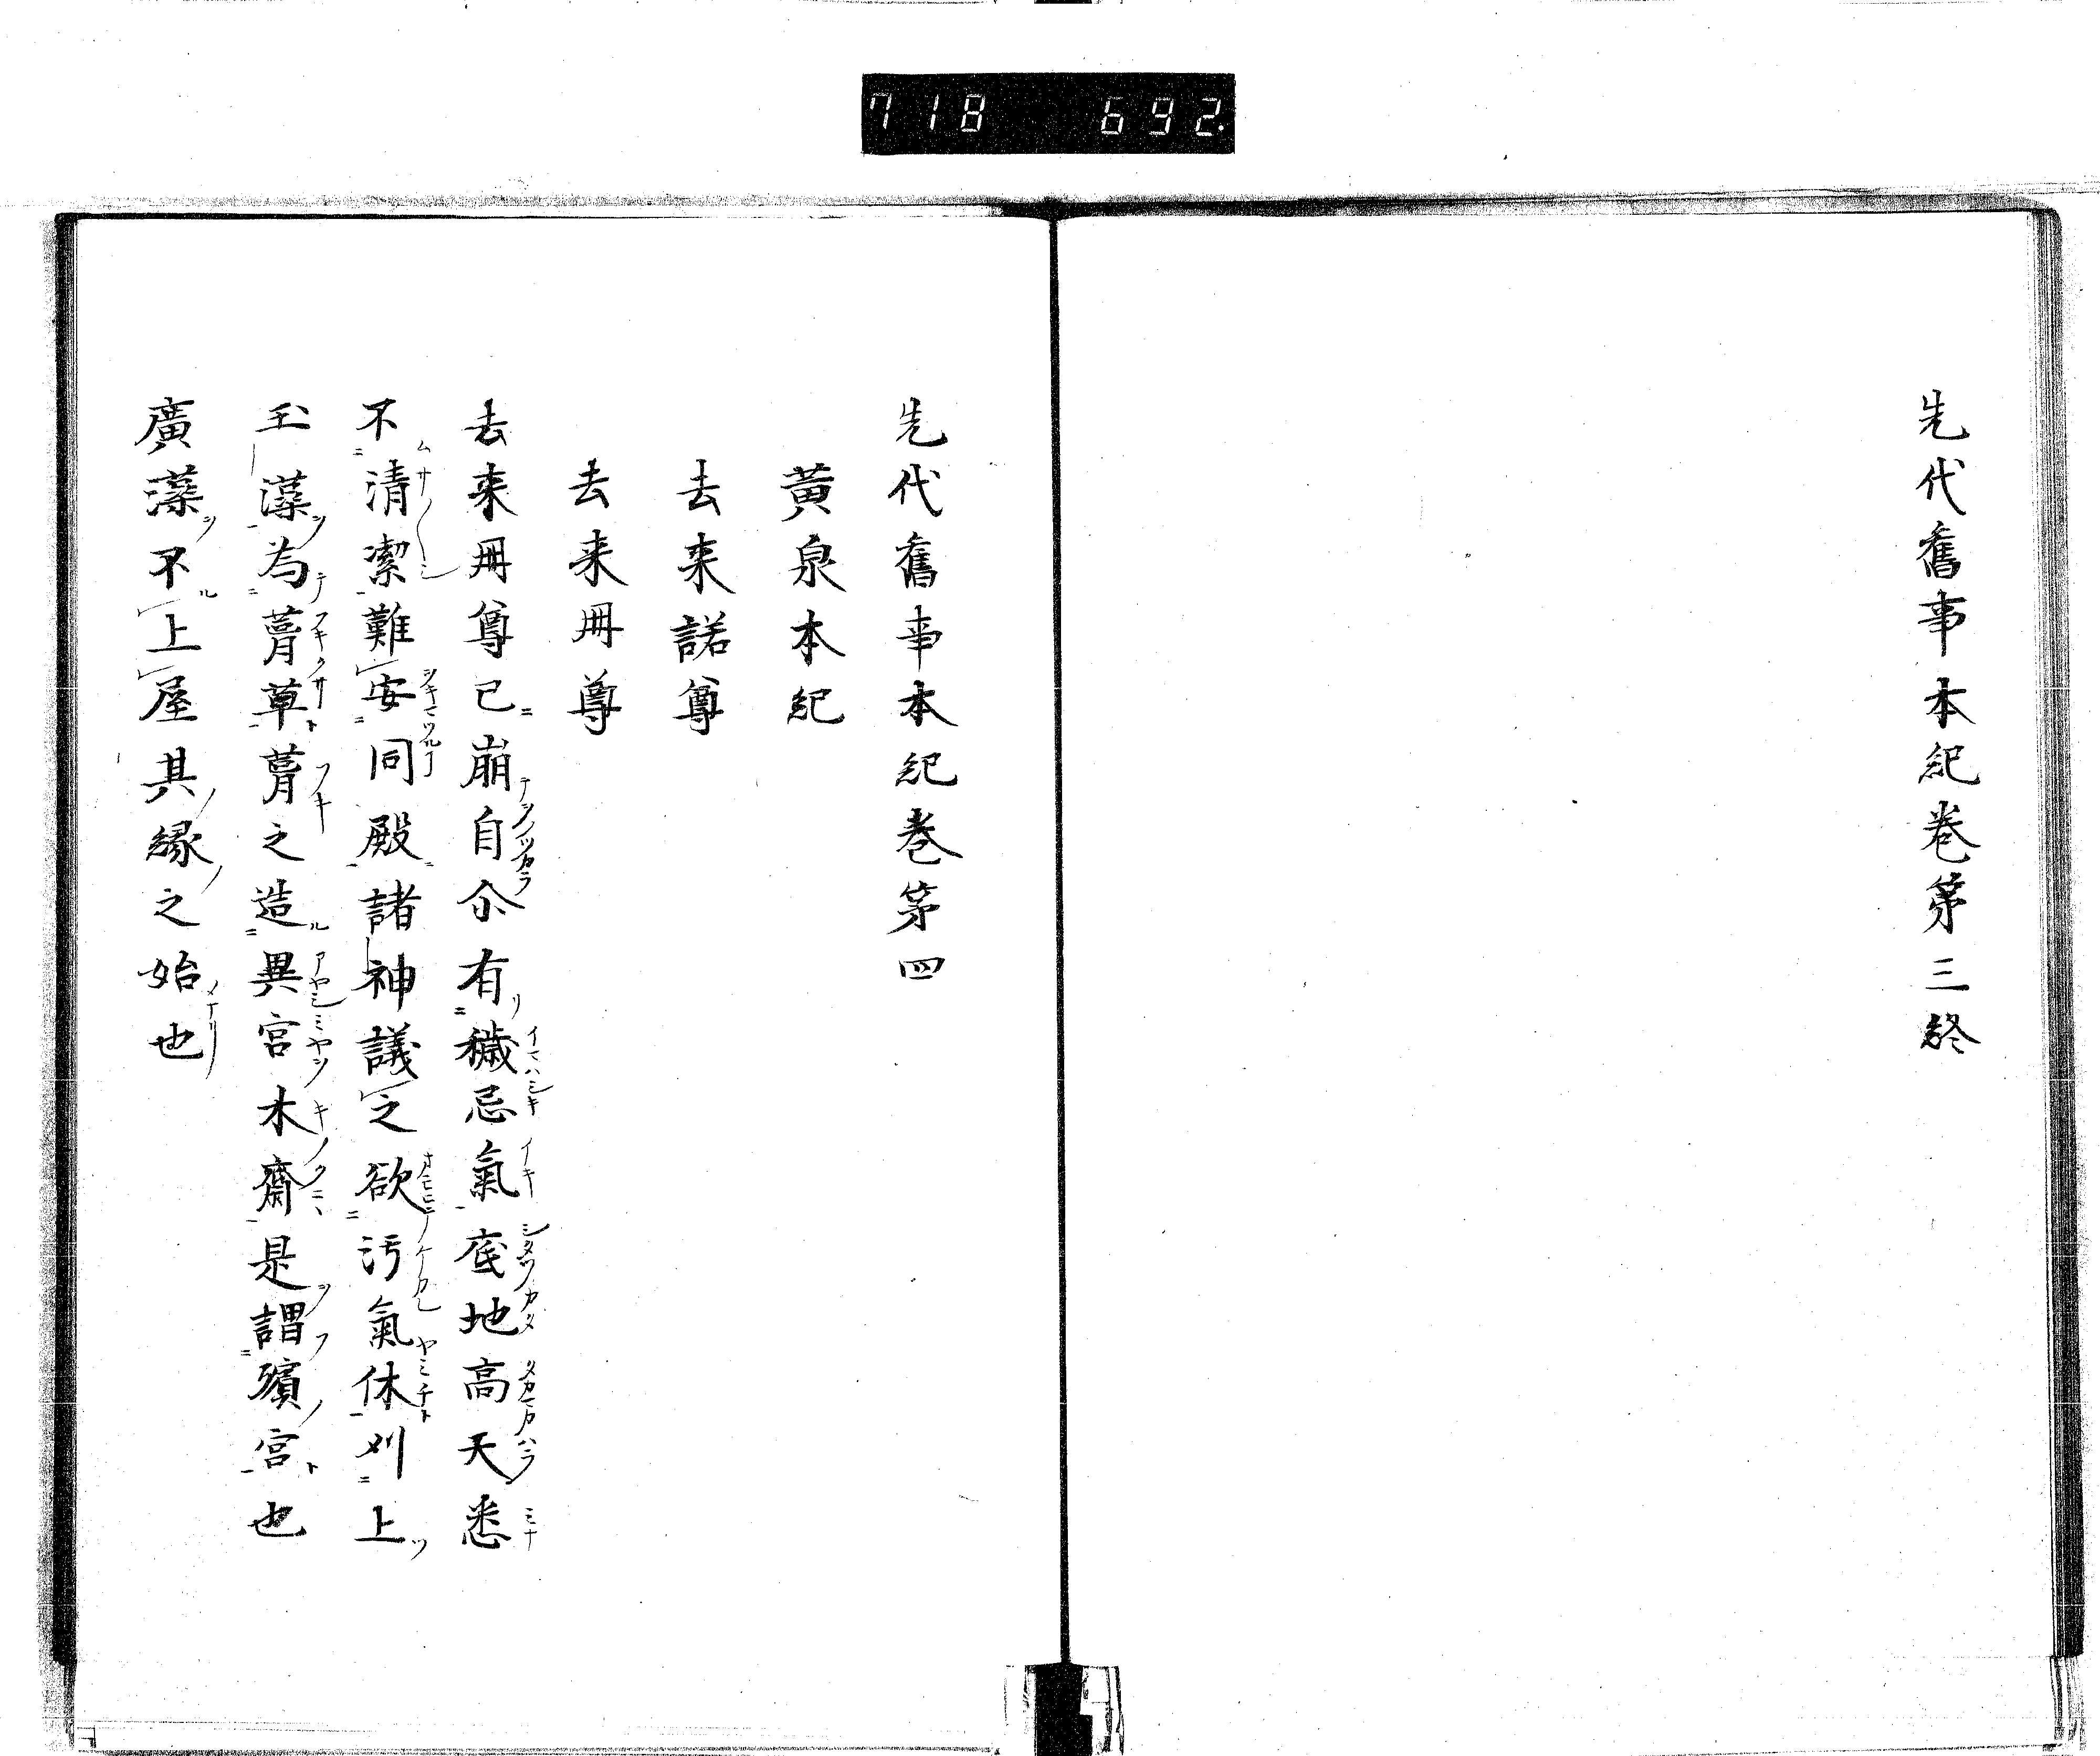 718 692.
先代舊事本紀巻第三終
先代舊事本紀巻第四
黄泉本紀
去来諾尊
去来冊尊
去来冊尊已崩自尒有穢忌氣底地高天悉
不清潔難安同殿諸神議之欲汚氣休刈上
玉藻為萺草萺之造異宮木齋是謂殯宮也
廣藻不上屋其縁之始也